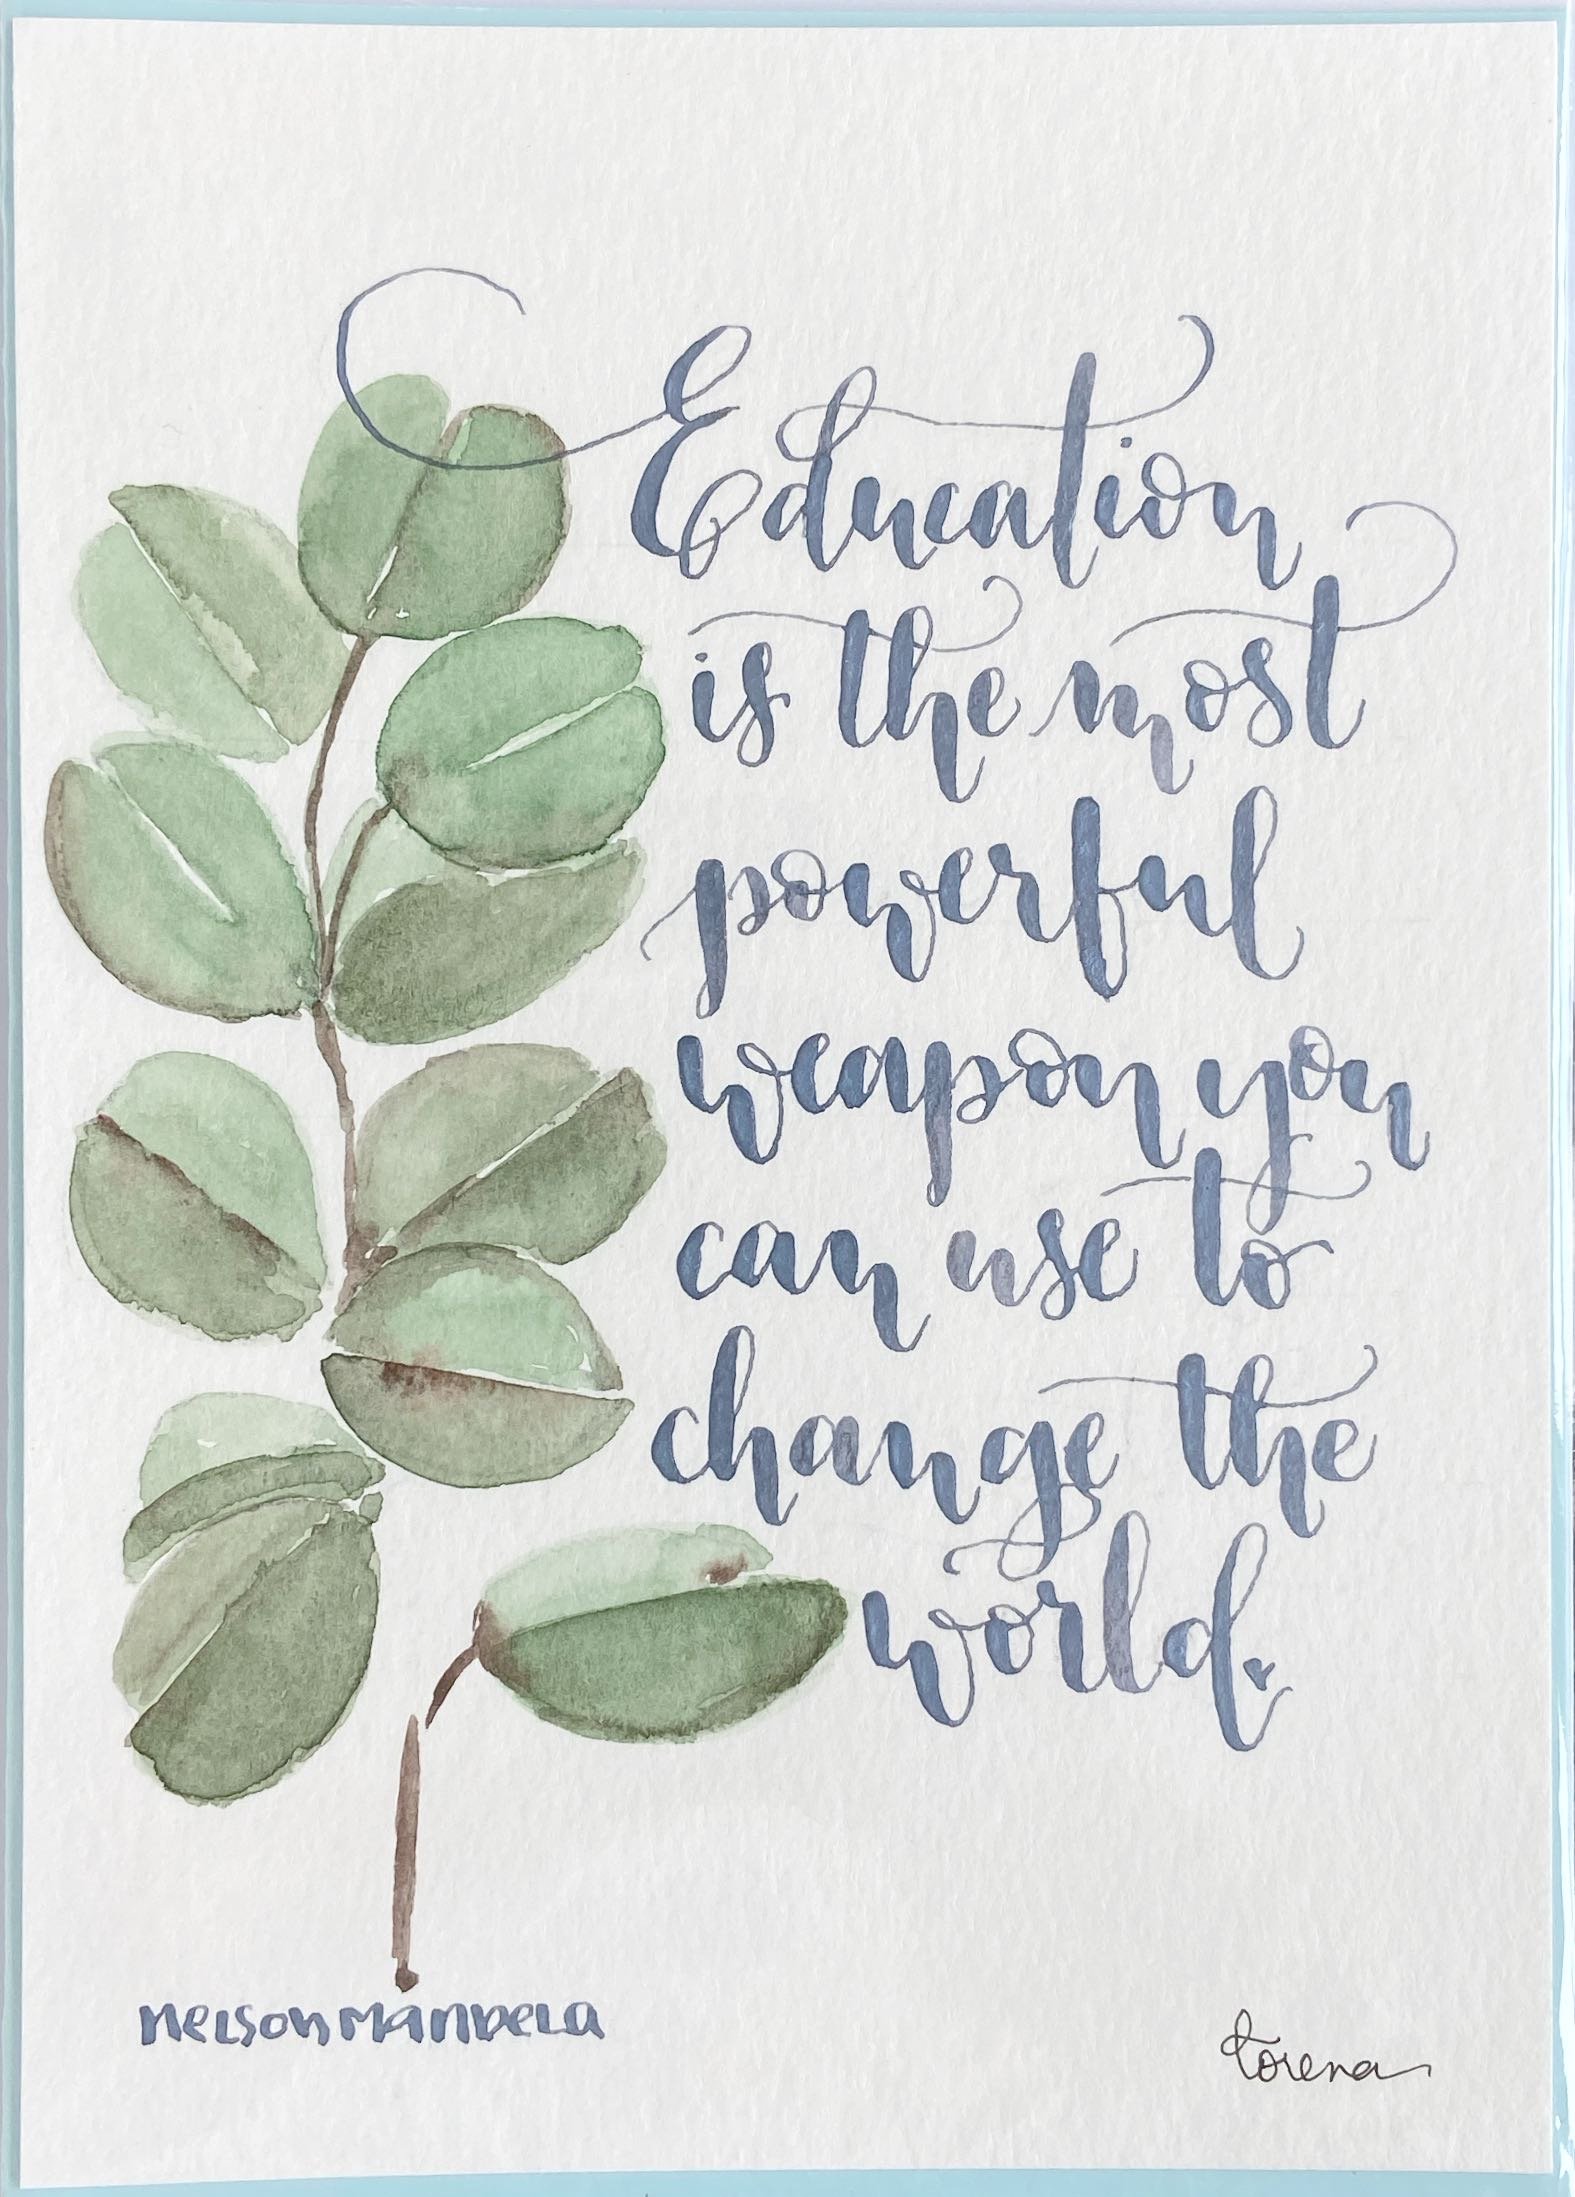 Education
is the most
powerful
weapon you
can use to
change the
world.
NELSON MANDELA
Lorena